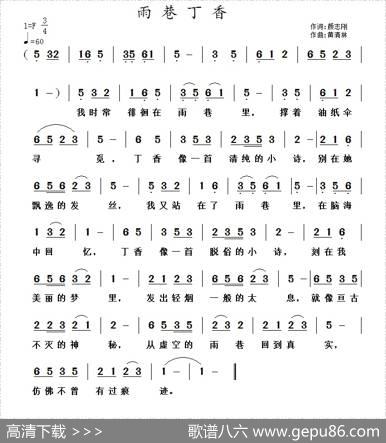 雨巷丁香
1=F 3/4
♩=60
作词:颜志刚
作曲:黄清林
( 5 32 | 165 | 35 61 | 5 - | 3 · 5 | 6 1 2 | 6 5 2 3 |
1 - ) | 5 3 2 | 1 6 5 | 3 5 6 1 | 5 - | 3 · 5 | 6 1 2 |
我时常 徘徊在 雨巷 里, 撑着 油纸伞
6 5 2 3 | 5 - | 1 6 5 | 3 5 1 | 2 3 5 3 | 2 2 1 |
寻 觅, 丁香 像一首 清纯的小 诗, 别在她
5 5 3 2 | 1 - | 5 3 2 | 1 6 | 3 5 6 1 | 5 · 3 5 |
飘逸的发 丝, 我又站 在了 雨巷 里, 在脑海
1 3 2 | 2 - | 1 6 5 | 3 5 1 | 2 3 5 3 | 2 · 2 2 |
中回 忆, 丁香 像一首 脱俗的小 诗, 刻在我
6 5 6 3 2 | 1 - | 6 5 3 5 | 1 6 1 2 3 | 5 · 3 2 1 |
美丽的梦 里, 发出轻烟 一般的太 息, 就像亘古
2 2 2 3 | 2 2 1 | 6 5 3 5 | 1 3 | 2 2 3 | 5 - |
不灭的神 秘, 从虚空的 雨巷 回到真 实,
6 5 3 5 | 6 5 3 2 | 1 - | 1 - ||
仿佛不曾 有过痕 迹。
高清下载 >>>
歌谱八六 www.gepu86.com